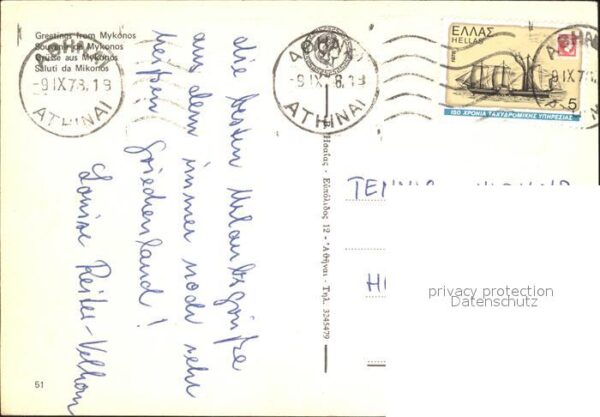 Greetings from Mykonos
Souvenir de Mykonos
Grüsse aus Mykonos
Saluti da Mikonos
ΑΘΗΝΑΙ
-9 IX 78.19
ATHINAI
ΑΘΗΝΑΙ
-9 IX 78.19
ATHINAI
ΑΘΗΝΑΙ
-9 IX 78
ΕΛΛΑΣ
HELLAS
1978
5
150 ΧΡΟΝΙΑ ΤΑΧΥΔΡΟΜΙΚΗΣ ΥΠΗΡΕΣΙΑΣ
die besten Urlaubsgrüße
aus dem immer noch sehr
heißen Griechenland!
Louise Reiter-
Εὐπόλιδος 12 - Ἀθῆναι - Τηλ. 3245479
TENNIS
H
privacy protection
Datenschutz
51